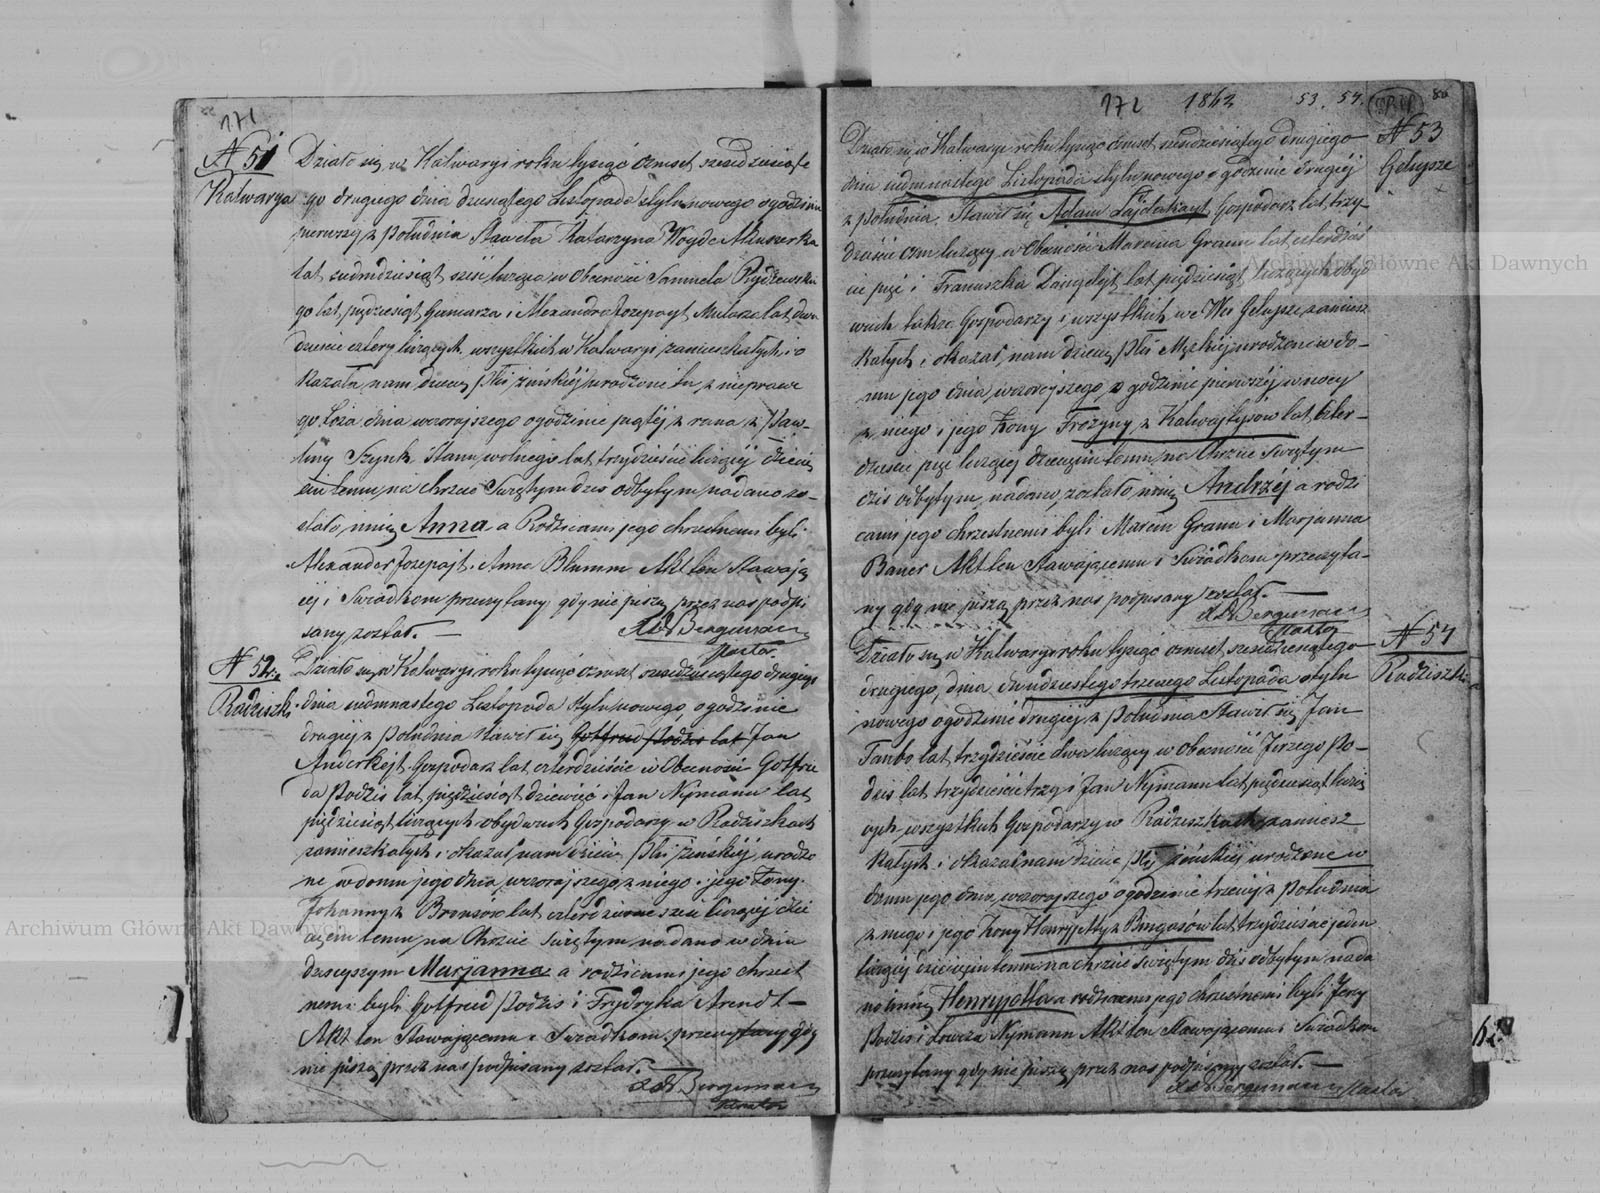 171
N 51
Kalwarya
Działo się w Kalwaryi roku tysiąc ośmset sześdziesiąte
go drugiego dnia dziesiątego Listopada stylu nowego o godzinie
pierwszej z południa Stawiła Katarzyna Woyde Akuszerka
lat siedmdziesiąt sześć licząca w Obecności Samuela Rydzewskie
go lat pięćdziesiąt Garncarza i Alexandra Jozepayt Mularza lat dwa
dzieście cztery liczących, wszystkich w Kalwaryi zamieszkałych i o
kazała nam dziecię płci żeńskiéj urodzone tu z nieprawe
go Łoża dnia wczorajszego o godzinie piątéj z rana z Paw-
liny Szynk Stanu wolnego lat trzydzieście liczącéj dzieci
ęciu temu na chrzcie Świętym dziś odbytym nadano zo-
stało imię Anna a Rodzicami jego chrzestnemi byli
Alexander Jozepajt i Anna Blumm Akt ten Stawają
céj i Świadkom przeczytany gdy nie piszą przez nas podpi
sany został. —
Bergmann
Pastor.
N 52.
Radziszki
Działo się w Kalwaryi roku tysiąc ośmset sześdziesiątego drugiego
dnia siedmnastego Listopada Stylu nowego, o godzinie
drugiéj z Południa stawił się Gotfried Podzis lat Jan
Anderkejt Gospodarz lat czterdzieście w Obecności Gotfrie
da Podzis lat pięćdziesiąt dziewięć i Jan Nejmann lat
pięćdziesiąt liczących obydwuch Gospodarzy w Radziszkach
zamieszkałych i okazał nam dziecię płci żeńskiéj urodzo
ne w domu jego dnia wczorajszego z niego i jego Żony
Johanny z Bronsów lat czterdzieście sześć liczącéj dzie
cięciu temu na Chrzcie Świętym nadano w dniu
dzisiejszym Marjanna a rodzicami jego chrzest
nemi byli Gotfried Podzis i Frydryka Arendt —
Akt ten Stawającemu i Świadkom przeczytany gdy
nie piszą przez nas podpisany został. —
Bergmann
Pastor
172 1862 53. 54. 80
N 53
Gełujsze
Działo się w Kalwaryi roku tysiąc ośmset sześdziesiątego drugiego
dnia siedmnastego Listopada stylu nowego o godzinie drugiéj
z południa, Stawił się Adam Łajdakayt Gospodarz lat trzy-
dzieście ośm liczący w Obecności Marcina Gramm lat czterdzieś
cie pięć i Franciszka Daugelajt lat pięćdziesiąt liczących obyd
wuch także Gospodarzy i wszystkich we Wsi Gełujsze zamiesz
kałych i okazał nam dziecię płci Męzkiéj urodzone w do-
mu jego dnia wczorajszego, o godzinie pierwszéj w nocy
z niego i jego Żony Frożyny z Kalwajtysów lat czter-
dzieście pięć liczącéj Dziecięciu temu na Chrzcie Świętym
dziś odbytym, nadano zostało imię Andrzéj a rodzi
cami jego chrzestnemi byli Marcin Gramm i Marjanna
Bauer Akt ten Stawającemu i Świadkom przeczyta-
ny gdy nie piszą przez nas podpisany został. —
Bergmann
Pastor
N 54
Radziszki
Działo się w Kalwaryi roku tysiąc ośmset sześdziesiątego
drugiego, dnia dwudziestego trzeciego Listopada stylu
nowego o godzinie drugiéj z południa Stawił się Jan
Tanbo lat trzydzieście dwa liczący w obecności Jerzego Po-
dzis lat trzydzieście trzy i Jan Nejmann lat pięćdziesiąt liczą
cych wszystkich Gospodarzy w Radziszkach zamiesz
kałych i okazał nam dziecię płci żeńskiéj urodzone w
domu jego dnia wczorajszego o godzinie trzeciéj z Południa
z niego i jego Żony Henryjetty z Bingasów lat trzydzieście jeden
liczącéj dziecięciu temu na chrzcie świętym dziś odbytym nada
no imię Henryjetta a rodzicami jego chrzestnemi byli Jerzy
Podzis i Lowiza Nejmann Akt ten Stawającemu i Świadkom
przeczytany gdy nie piszą przez nas podpisany został. —
Bergmann Pastor
62.
Archiwum Główne Akt Dawnych
Archiwum Główne Akt Dawnych